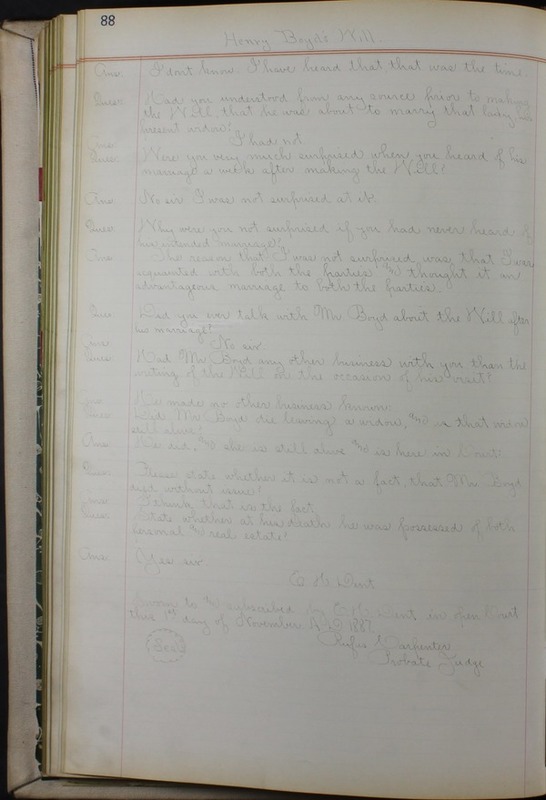 88
Henry Boyd's Will.
Ans. I dont know. I have heard that that was the time.
Ques. Had you understood from any source prior to making
the Will, that he was about to marry that lady, his
present widow?
Ans. I had not
Ques. Were you very much surprised when you heard of his
marriage a week after making the Will?
Ans. No sir I was not surprised at it.
Ques. Why were you not surprised if you had never heard of
his intended marriage?
Ans. The reason that I was not surprised was that I was
acquainted with both the parties & thought it an
advantageous marriage to both the parties.
Ques. Did you ever talk with Mr Boyd about the Will after
his marriage?
Ans. No sir.
Ques. Had Mr Boyd any other business with you than the
writing of the Will on the occasion of his visit?
Ans. He made no other business known.
Ques. Did Mr Boyd die leaving a widow, & is that widow
still alive?
Ans. He did, & she is still alive & is here in Court.
Ques. Please state whether it is not a fact, that Mr Boyd
died without issue?
Ans. I think that is the fact.
Ques. State whether at his death he was possessed of both
personal & real estate?
Ans. Yes sir
E H Dent
Sworn to & subscribed by E H Dent in open Court
this 1st day of November A D 1887.
Rufus Carpenter
Seal Probate Judge